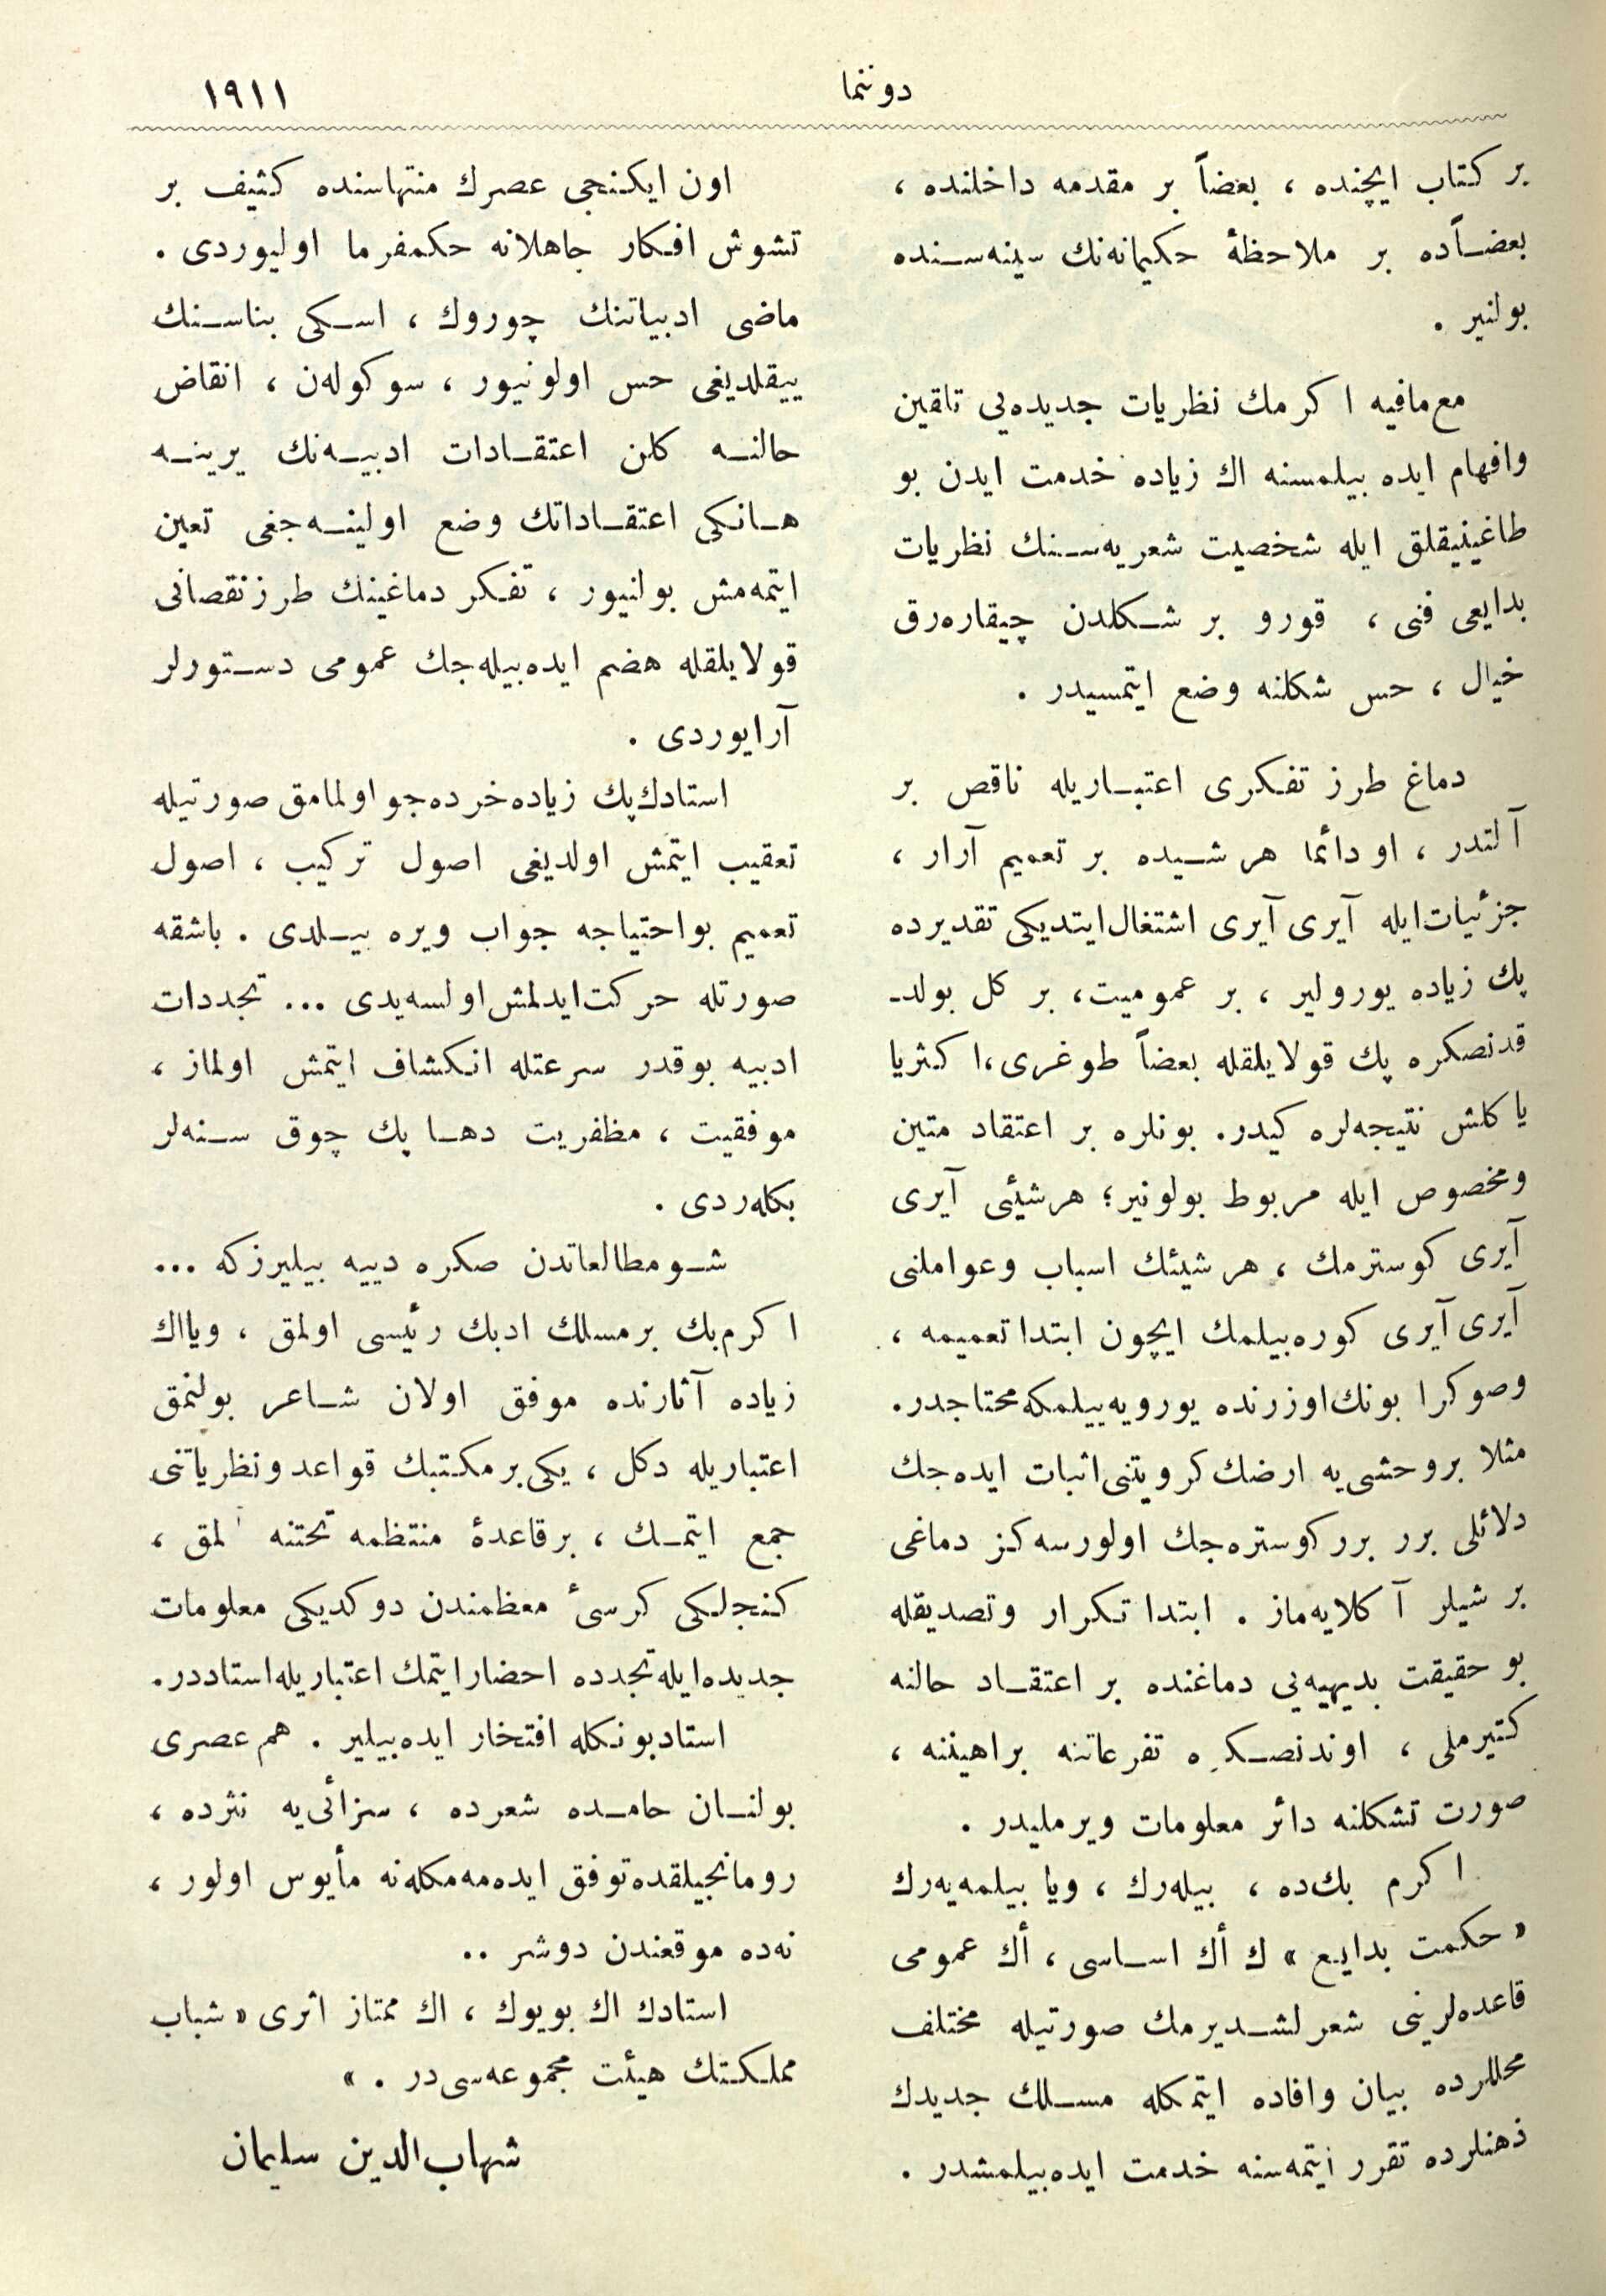 دوننما
١٩١١
بر كتاب ايچنده ، بعضاً بر مقدمه داخلنده ،
بعضاًده بر ملاحظۀ حكيمانه‌نك سينه‌سنده
بولنير .
مع‌مافيه اكرمك نظريات جديده‌يى تلقين
وافهام ايده بيلمسنه اك زياده خدمت ايدن بو
طاغينيقلق ايله شخصيت شعريه‌سنك نظريات
بدايعى فنى ، قورو بر شكلدن چيقاره‌رق
خيال ، حس شكلنه وضع ايتمسيدر .
دماغ طرز تفكرى اعتباريله ناقص بر
آلتدر ، او دائما هر شيده بر تعميم آرار ،
جزئيات ايله آيرى آيرى اشتغال ايتديكى تقديرده
پك زياده يورولير ، بر عموميت ، بر كل بولد-
قدنصكره پك قولايلقله بعضاً طوغرى ، اكثريا
ياكلش نتيجه‌لره كيدر . بونلره بر اعتقاد متين
ومخصوص ايله مربوط بولونير ؛ هرشيئى آيرى
آيرى كوسترمك ، هر شيئك اسباب وعواملنى
آيرى آيرى كوره‌بيلمك ايچون ابتدا تعميمه ،
وصوكرا بونك اوزرنده يورويه‌بيلمكه محتاجدر .
مثلا بر وحشى‌يه ارضك كرويتنى اثبات ايده‌جك
دلائلى برر برر كوستره‌جك اولورسه‌كز دماغى
بر شيلر آكلايه‌ماز . ابتدا تكرار وتصديقله
بو حقيقت بديهيه‌يى دماغنده بر اعتقاد حالنه
كتيرملى ، اوندنصكره تفرعاتنه براهيننه ،
صورت تشكلنه دائر معلومات ويرمليدر .
اكرم بك‌ده ، بيله‌رك ، ويا بيلمه‌يه‌رك
« حكمت بدايع » ك أك اساسى ، أك عمومى
قاعده‌لرينى شعرلشديرمك صورتيله مختلف
محللرده بيان وافاده ايتمكله مسلك جديدك
ذهنلرده تقرر ايتمه‌سنه خدمت ايده‌بيلمشدر .
اون ايكنجى عصرك منتهاسنده كثيف بر
تشوش افكار جاهلانه حكمفرما اوليوردى .
ماضى ادبياتنك چوروك ، اسكى بناسنك
ييقلديغى حس اولونيور ، سوكوله‌ن ، انقاض
حالنه كلن اعتقادات ادبيه‌نك يرينه
هانكى اعتقاداتك وضع اولينه‌جغى تعين
ايتمه‌مش بولنيور ، تفكر دماغينك طرزنقصانى
قولايلقله هضم ايده‌بيله‌جك عمومى دستورلر
آرايوردى .
استادك پك زياده خرده‌جو اولمامق صورتيله
تعقيب ايتمش اولديغى اصول تركيب ، اصول
تعميم بواحتياجه جواب ويره بيلدى . باشقه
صورتله حركت ايدلمش اولسه‌يدى ... تجددات
ادبيه بوقدر سرعتله انكشاف ايتمش اولماز ،
موفقيت ، مظفريت دها پك چوق سنه‌لر
بكله‌ردى .
شو مطالعاتدن صكره دييه بيليرزكه ...
اكرم‌بك برمسلك ادبك رئيسى اولمق ، ويااك
زياده آثارنده موفق اولان شاعر بولنمق
اعتباريله دكل ، يكى برمكتبك قواعد ونظرياتنى
جمع ايتمك ، برقاعدۀ منتظمه تحتنه ، 
كنجلكى كرسئ معظمندن دوكديكى معلومات
جديده ايله تجدده احضار ايتمك اعتباريله استاددر .
استاد بونكله افتخار ايده‌بيلير . هم عصرى
بولنان حامده شعرده ، سزائى‌يه نثرده ،
رومانجيلقده توفق ايده‌مه‌مكله نه مأيوس اولور ،
نه‌ده موقعندن دوشر ..
استادك اك بويوك ، اك ممتاز اثرى « شباب
مملكتك هيئت مجموعه‌سى‌در . »
شهاب‌الدين سليمان